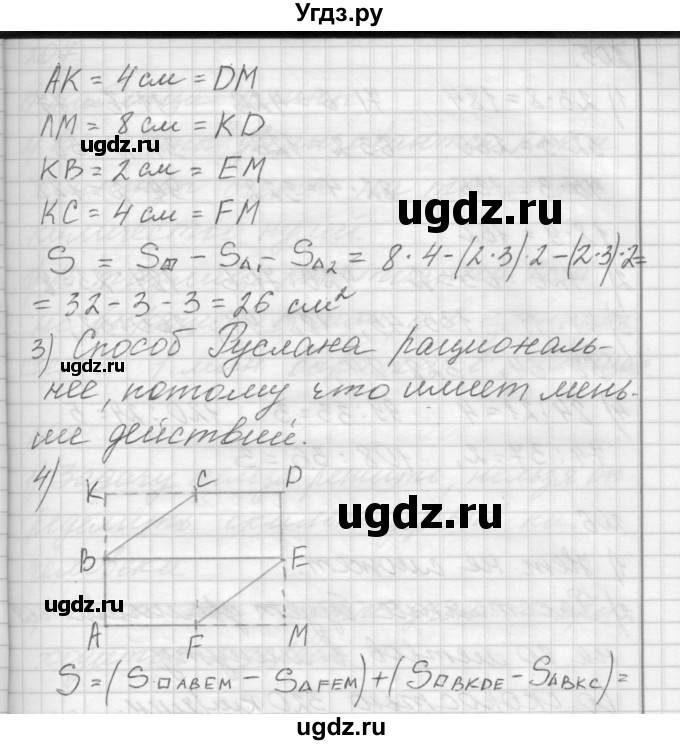 Угдз.ру
AK = 4 см = DM
AM = 8 см = KD
ugdz.ru
KB = 2 см = EM
KC = 4 см = FM
ugdz.ru
S = S▱ - S△₁ - S△₂ = 8 · 4 - (2·3) · 2 - (2·3) · 2 =
= 32 - 3 - 3 = 26 см²
3) Способ Руслана рациональ-
ugdz.ru
нее, потому что имеет мень-
ше действий.
4)
K C D
ugdz.ru
B E
ugdz.ru
A F M
S = (S□ABEM - S△FEM) + (S□BKDE - S△BKC) =
ugdz.ru
ugdz.ru